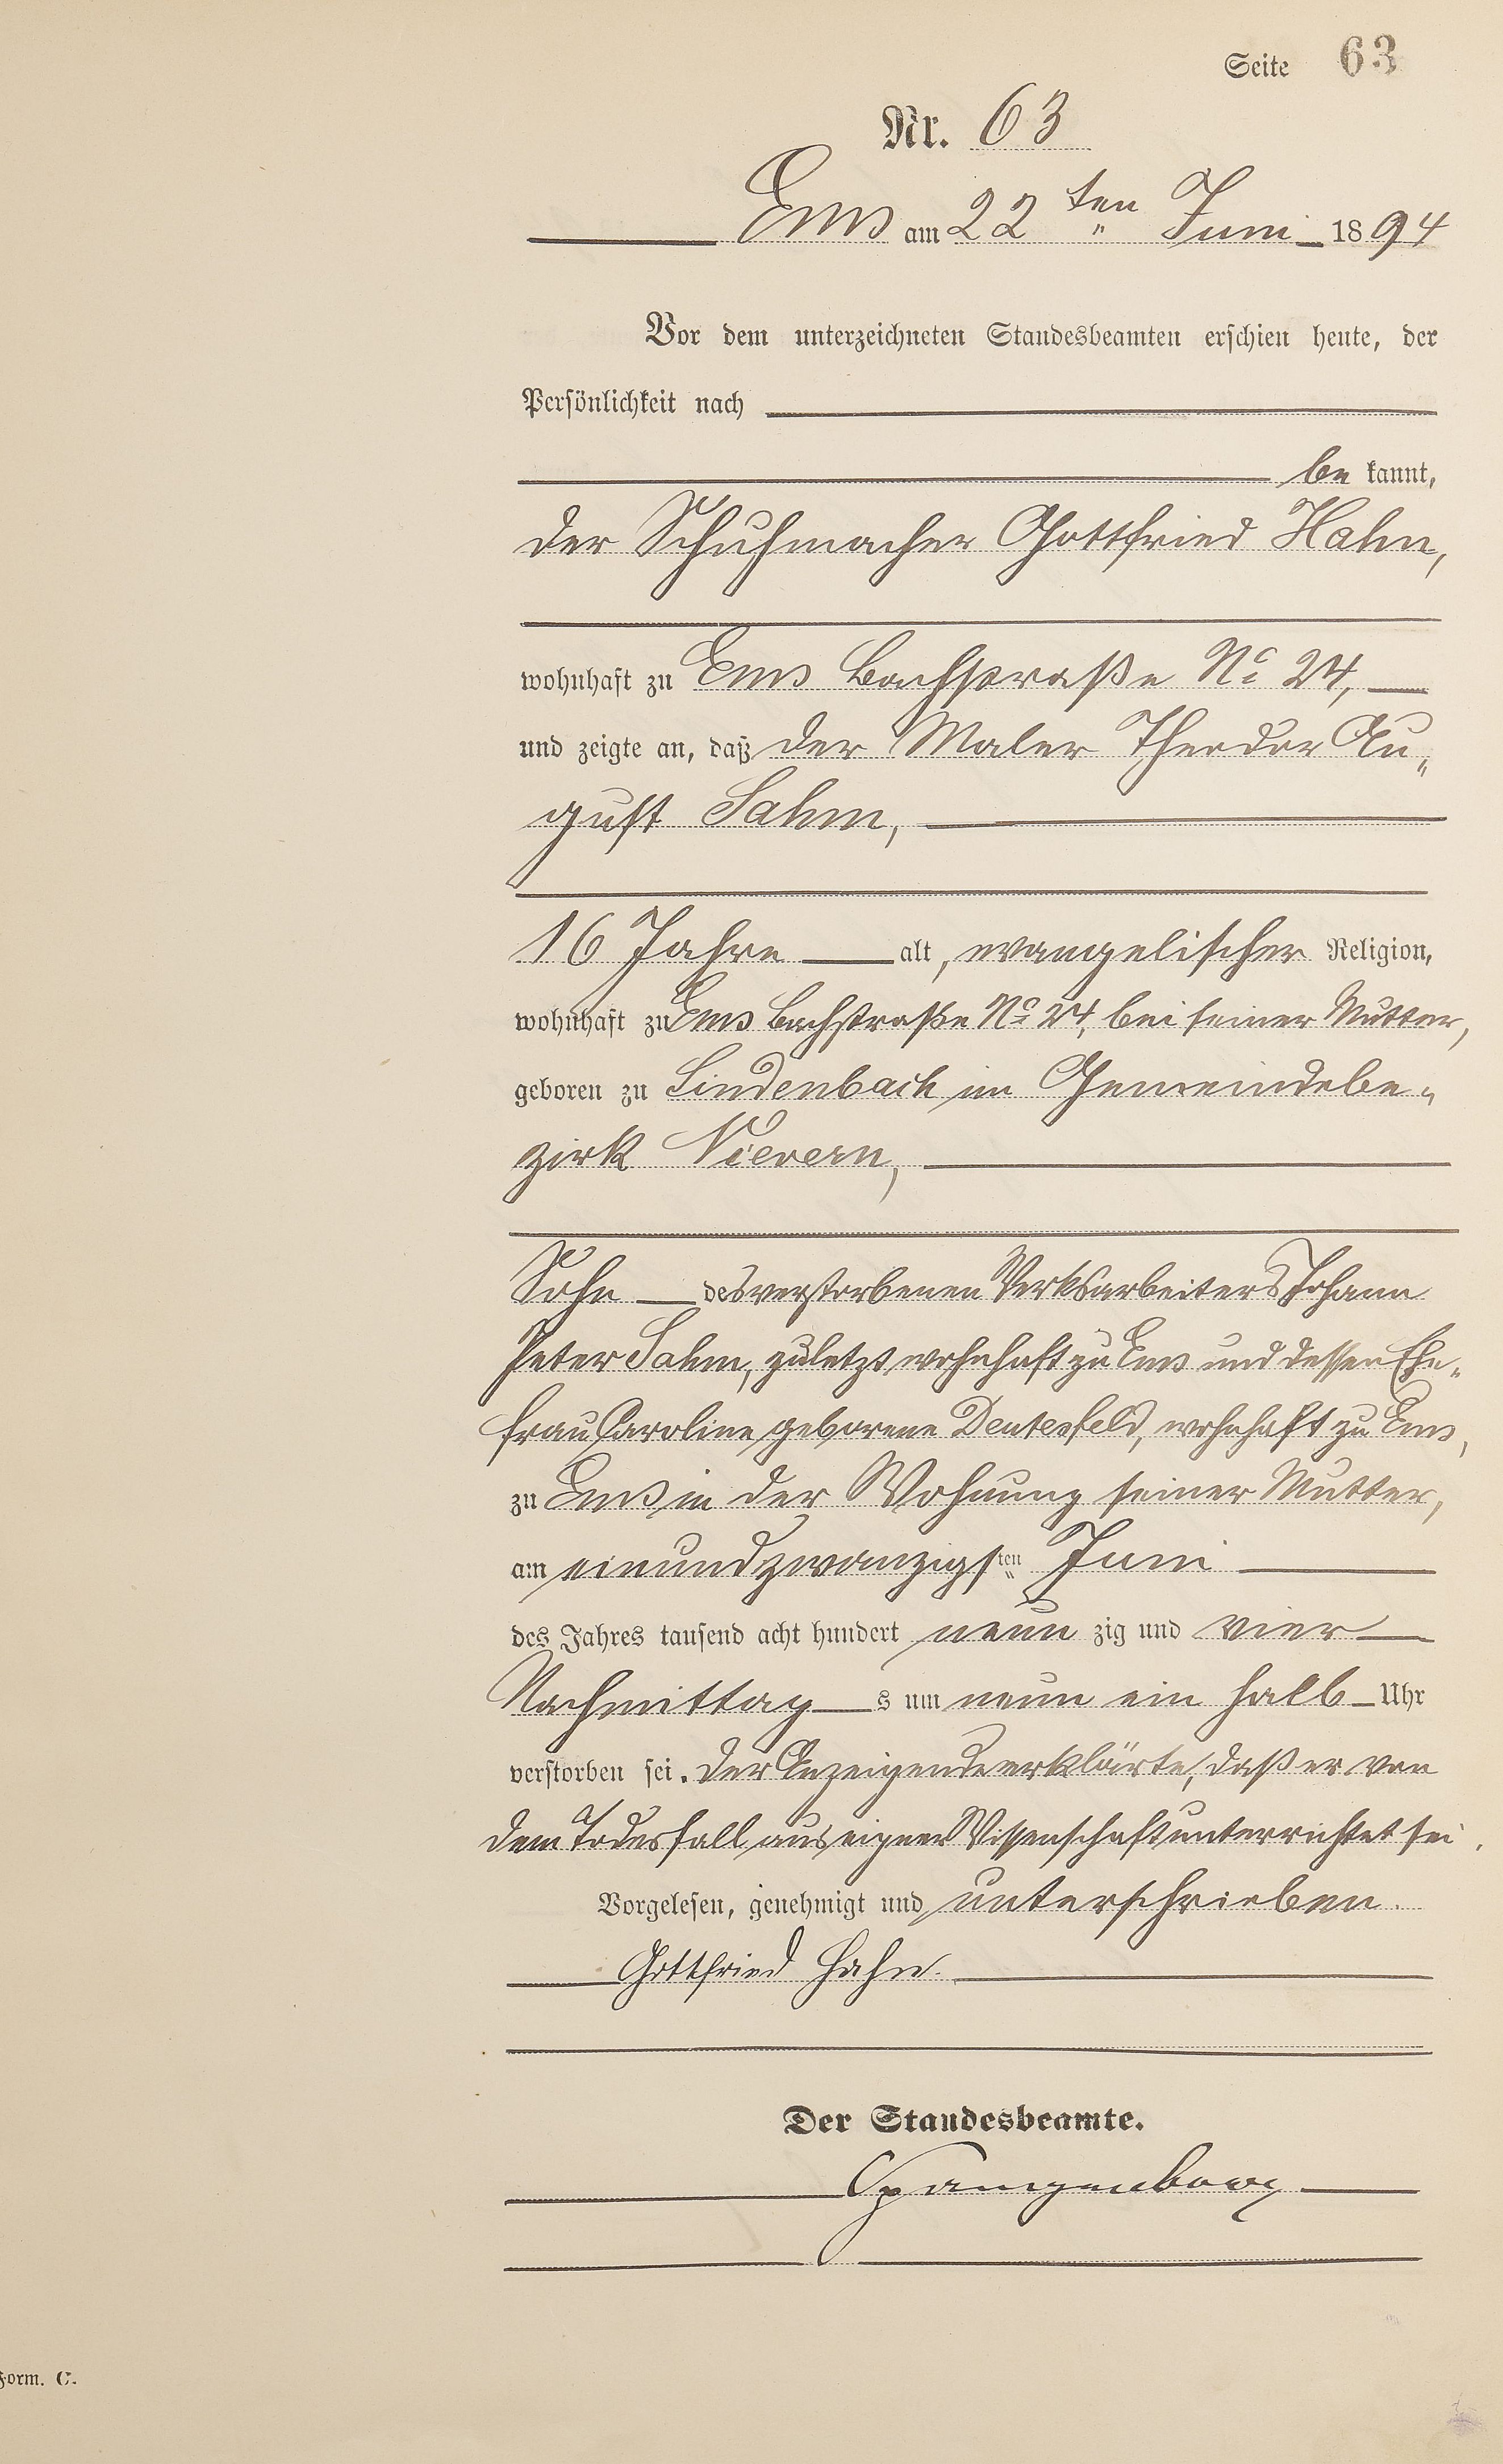 Seite 63
Nr. 63
Ems am 22ten Juni 1894
Vor dem unterzeichneten Standesbeamten erschien heute, der
Persönlichkeit nach
be kannt,
der Schuhmacher Gottfried Hahn,
wohnhaft zu Ems Bachstraße No 24,
und zeigte an, daß der Maler Theodor Au„
gust Sahm,
16 Jahre alt, evangelischer Religion,
wohnhaft zu Ems Bachstraße No 24, bei seiner Mutter,
geboren zu Lindenbach im Gemeindebe„
zirk Nievern,
Sohn des verstorbenen Werksarbeiters Johann
Peter Sahm, zuletzt wohnhaft zu Ems und dessen Ehe„
frau Caroline geborene Dentesfeld, wohnhaft zu Ems,
zu Ems in der Wohnung seiner Mutter,
am einundzwanzigsten Juni
des Jahres tausend acht hundert neun zig und vier
Nachmittag s um neun ein halb Uhr
verstorben sei. Der Anzeigende erklärte, daß er von
dem Todesfall aus eigner Wissenschaft unterrichtet sei.
Vorgelesen, genehmigt und unterschrieben.
Gottfried Hahn.
Der Standesbeamte.
Spangenberg
Form. C.